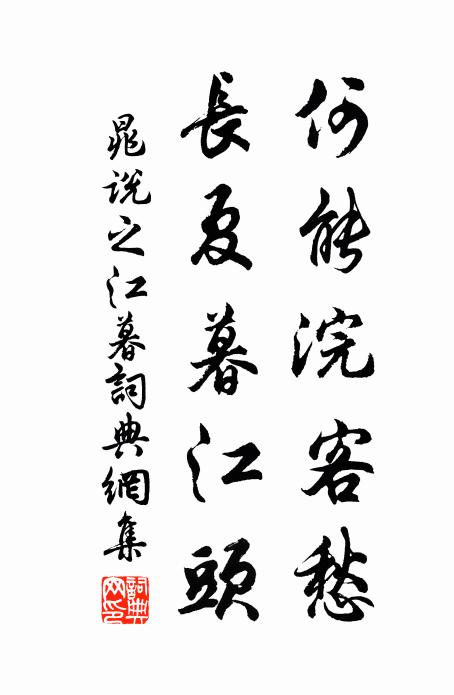 何能浣客愁
長夏暮江頭
晁說之江暮詞典網集
詞典網印